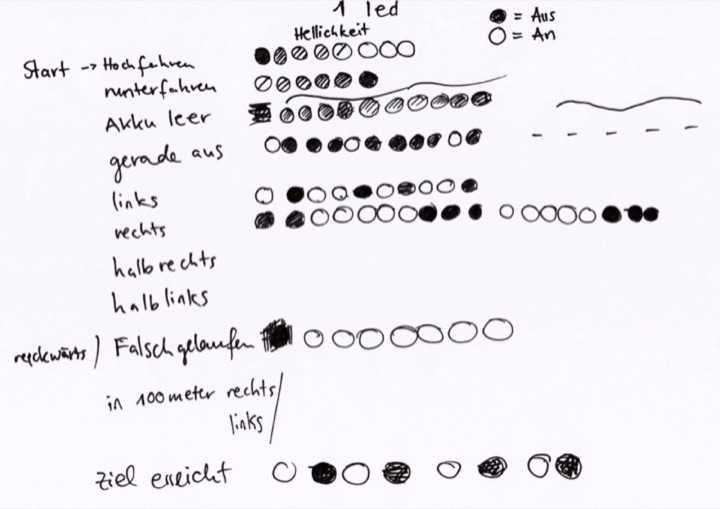 1 led
Hellichkeit
= Aus
= An
Start -> Hochfahren
runterfahren
Akku leer
gerade aus
links
rechts
halbrechts
halblinks
rückwärts) Falsch gelaufen
in 100 meter rechts/
links/
ziel erreicht